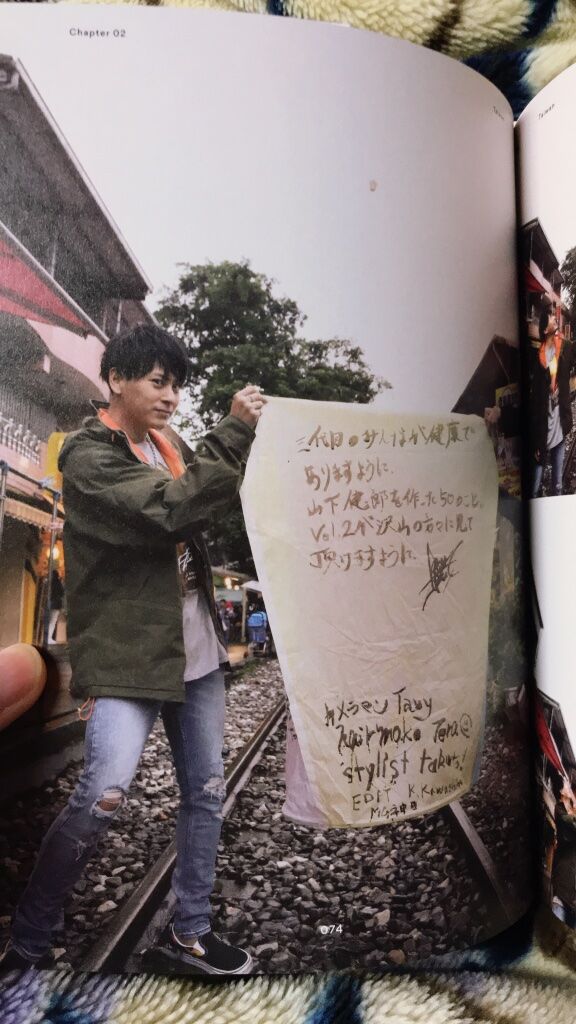 Chapter 02
Taiwan
Taiwan
三代目のみんなが健康で
ありますように、
山下健二郎を作った50のこと。
Vol.2が沢山の方々に見て
頂けますように、
カメラマン Tawy
hair make Tara
stylist takurs!
EDIT K.Kawa
074